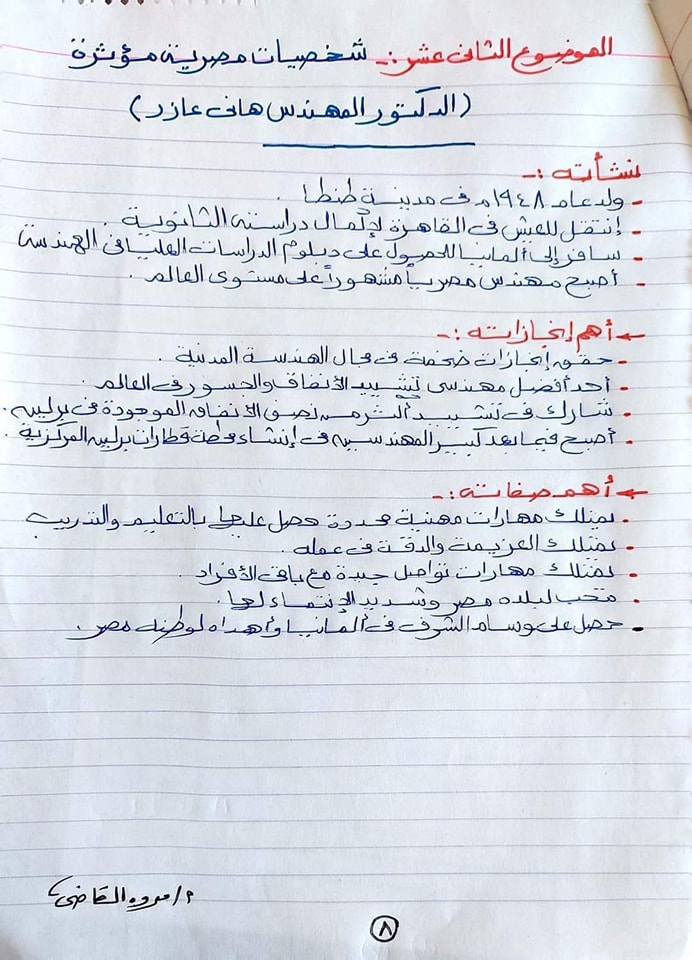 الموضوع الثانى عشر :- شخصيات مصرية مؤثرة
(الدكتور المهندس هانى عازر)
نشأته :-
- ولد عام ١٩٤٨م فى مدينة طنطا .
- إنتقل للعيش فى القاهرة لإكمال دراسته الثانوية .
- سافر إلى ألمانيا للحصول على دبلوم الدراسات العليا فى الهندسة
- أصبح مهندس مصرياً مشهوراً على مستوى العالم .
← أهم إنجازاته :-
- حقق إنجازات ضخمة فى مجال الهندسة المدنية .
- أحد أفضل مهندسى تشييد الأنفاق والجسور فى العالم .
- شارك فى تشييد أكثر من نصف الانفاق الموجودة فى برلين .
- أصبح فيما بعد كبير المهندسين فى إنشاء محطة قطارات برلين المركزية .
← أهم صفاته :-
- يمتلك مهارات مهنية محددة حصل عليها بالتعليم والتدريب
- يمتلك العزيمة والدقة فى عمله .
- يمتلك مهارات تواصل جيدة مع باقى الأفراد .
- محب لبلده مصر وشديد الإنتماء لها .
- حصل على وسام الشرف فى ألمانيا وأهداه لوطنه مصر .
م/ مروه القاضى
٨